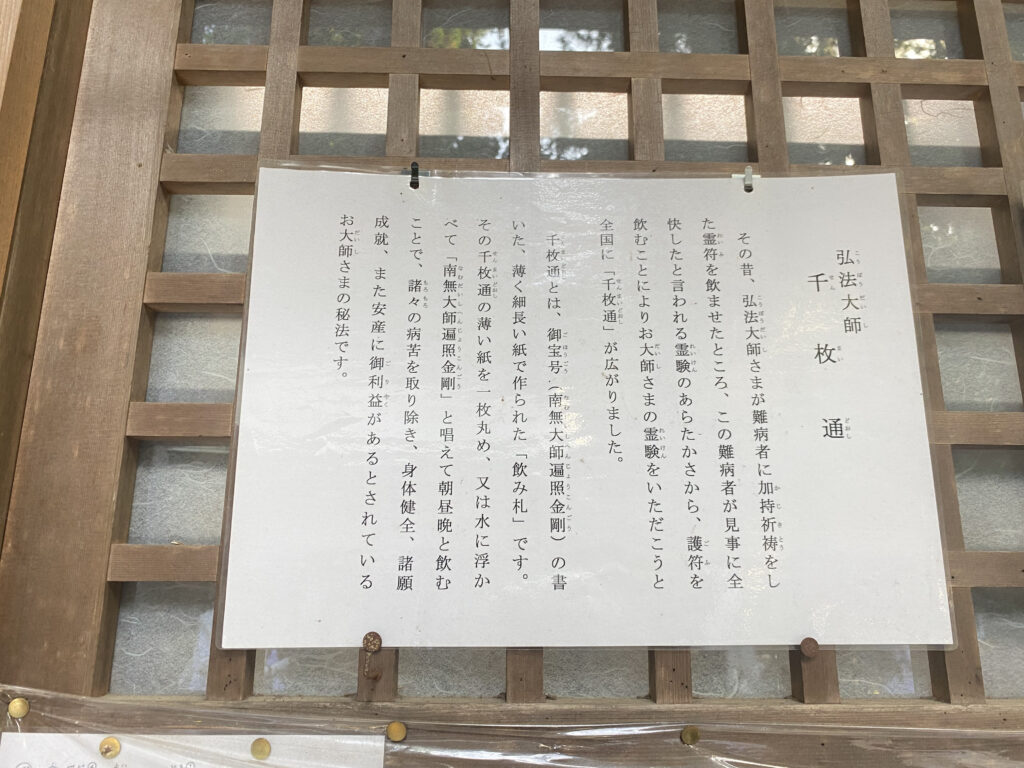 弘法大師
千枚通
その昔、弘法大師さまが難病者に加持祈祷をし
た霊符を飲ませたところ、この難病者が見事に全
快したと言われる霊験のあらたかさから、護符を
飲むことによりお大師さまの霊験をいただこうと
全国に「千枚通」が広がりました。
千枚通とは、御宝号（南無大師遍照金剛）の書
いた、薄く細長い紙で作られた「飲み札」です。
その千枚通の薄い紙を一枚丸め、又は水に浮か
べて「南無大師遍照金剛」と唱えて朝昼晩と飲む
ことで、諸々の病苦を取り除き、身体健全、諸願
成就、また安産に御利益があるとされている
お大師さまの秘法です。